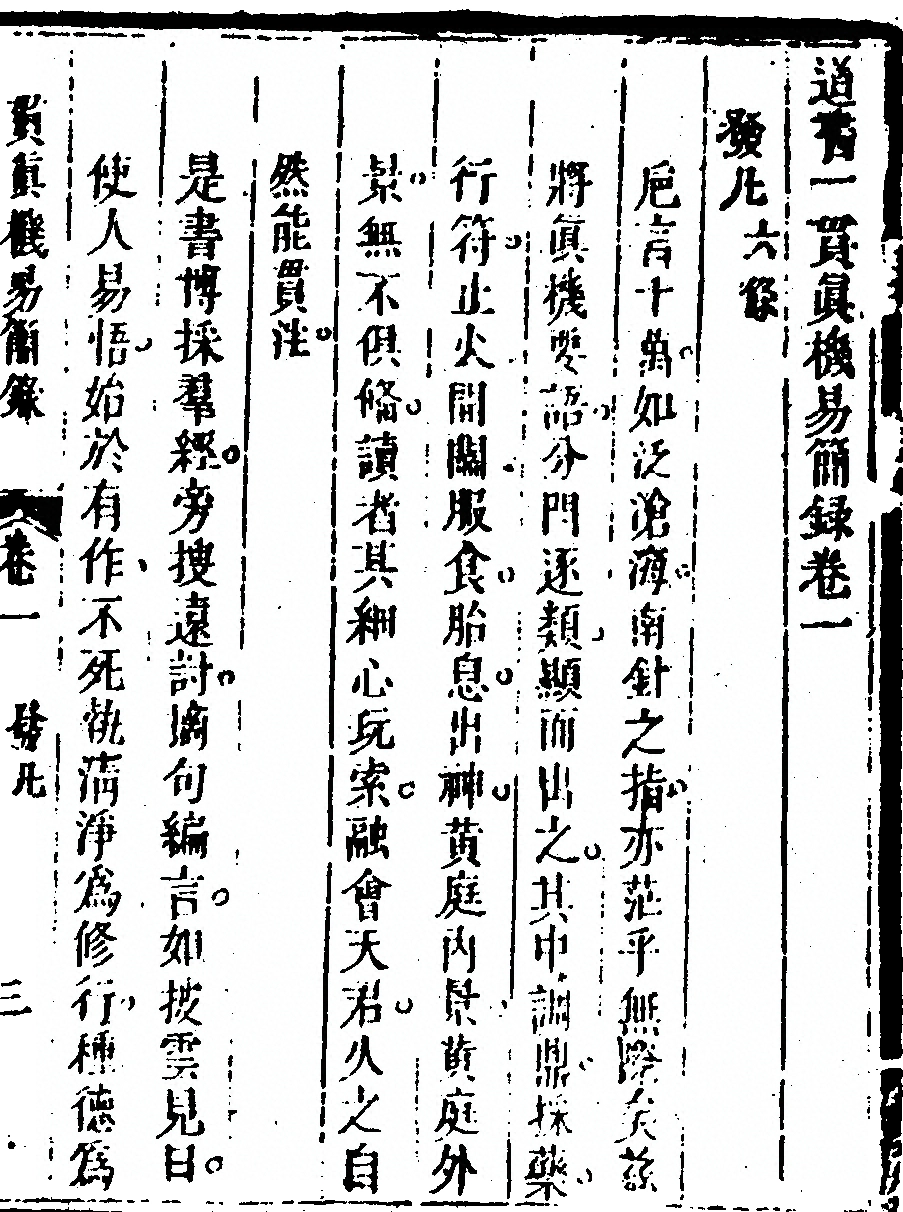 道書一貫眞機易簡錄卷一
發凡 六條
巵言十萬如泛滄海南針之指亦茫乎無際矣茲
將眞機要語分門逐類顯而出之其中調鼎採藥
行符止火開關服食胎息出神黃庭內景黃庭外
景無不俱備讀者其細心玩索融會天君久之自
然能貫注
是書博採羣經旁搜遠討摘句編言如披雲見日
使人易悟始於有作不死執淸淨爲修行種德爲
貫眞機易簡錄 卷一 發凡 三